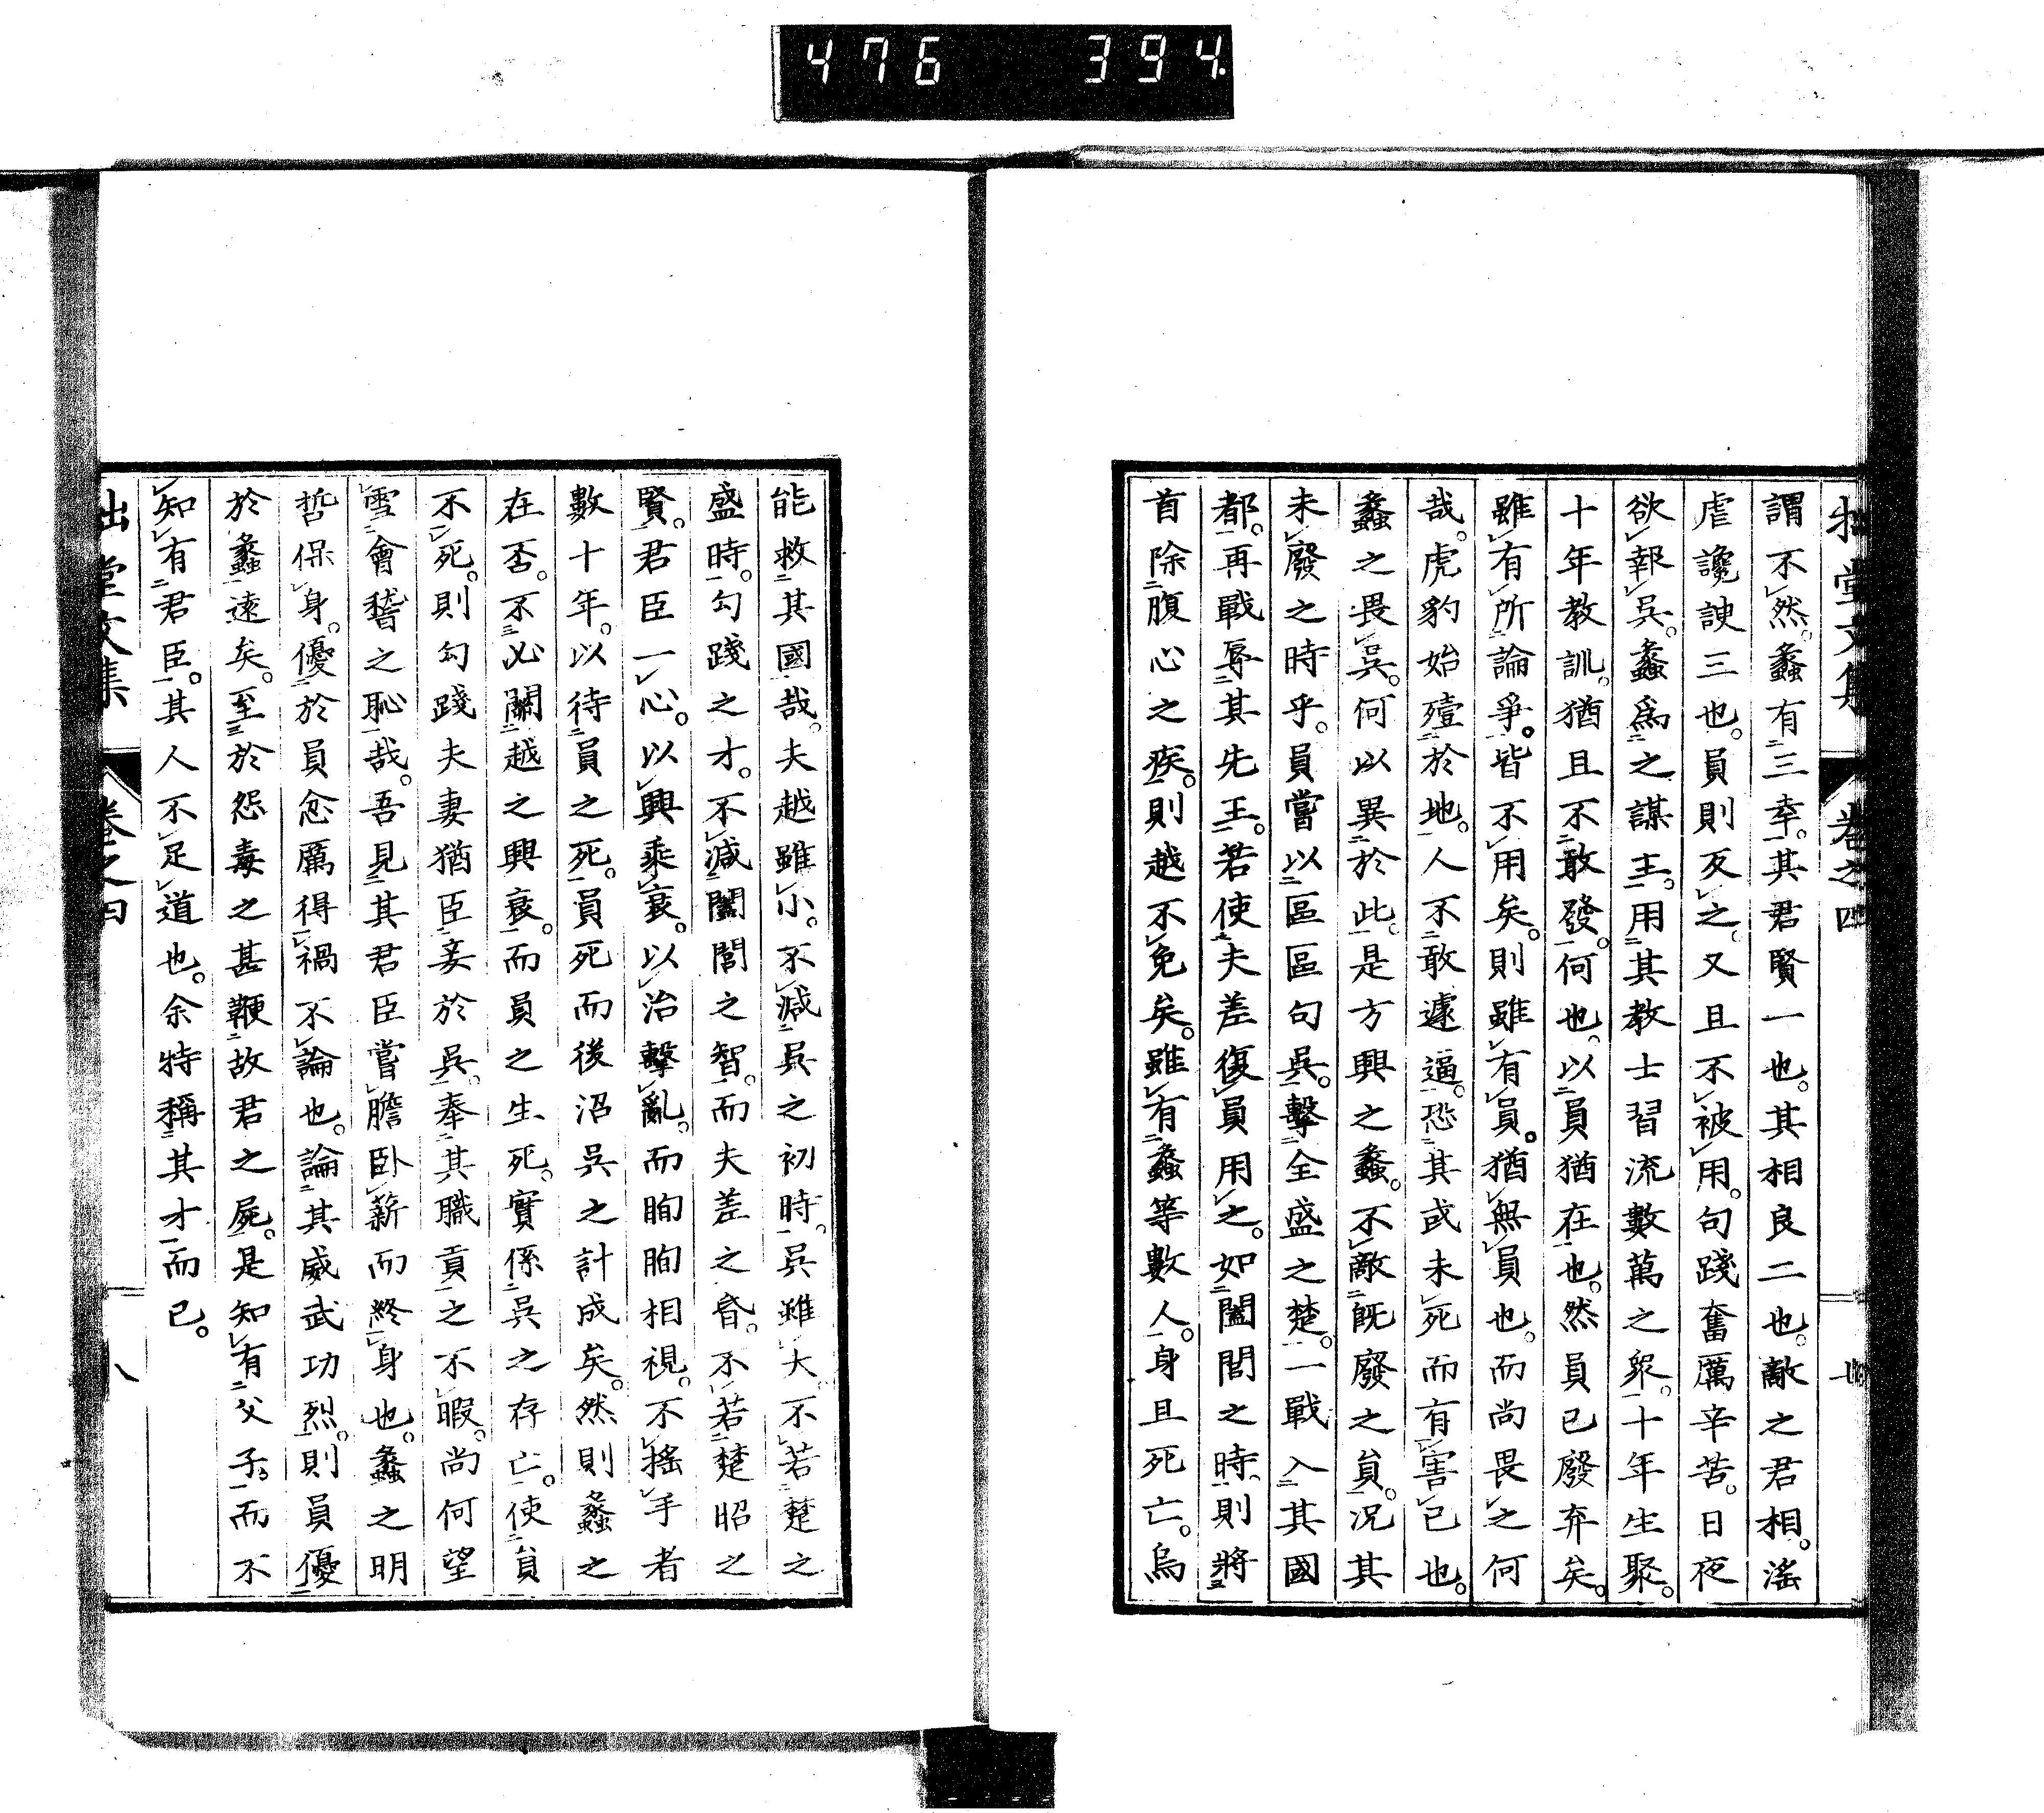 476 394.
拙堂文集 卷之四
謂不然。蠡有三幸。其君賢一也。其相良二也。敵之君相。滛
虐讒諛三也。員則反之。又且不被用。句踐奮厲辛苦。日夜
欲報吳。蠡爲之謀主。用其教士習流數萬之衆。十年生聚。
十年教訓。猶且不敢發。何也。以員猶在也。然員已廢弃矣。
雖有所論爭。皆不用矣。則雖有員。猶無員也。而尚畏之何
哉。虎豹始殪於地。人不敢遽逼。恐其或未死而有害已也。
蠡之畏吳。何以異於此。是方興之蠡。不敵既廢之員。況其
未廢之時乎。員嘗以區區句吳。擊全盛之楚。一戰入其國
都。再戰辱其先王。若使夫差復員用之。如闔閭之時、則將
首除腹心之疾。則越不免矣。雖有蠡等數人。身且死亡。烏
能救其國哉。夫越雖小。不減吳之初時。吳雖大。不若楚之
盛時。勾踐之才。不減闔閭之智。而夫差之昏。不若楚昭之
賢。君臣一心。以興乘衰。以治擊亂。而眴眴相視。不搖手者
數十年。以待員之死。員死而後沼吳之計成矣。然則蠡之
在否。不必關越之興衰。而員之生死。實係吳之存亡。使員
不死。則勾踐夫妻猶臣妾於吳。奉其職貢之不暇。尚何望
雪會稽之恥哉。吾見其君臣嘗膽臥薪而終身也。蠡之明
哲保身。優於員忿厲得禍不論也。論其威武功烈。則員優
於蠡遠矣。至於怨毒之甚鞭故君之屍。是知有父子。而不
知有君臣。其人不足道也。余特稱其才而已。
拙堂文集 卷之四 八